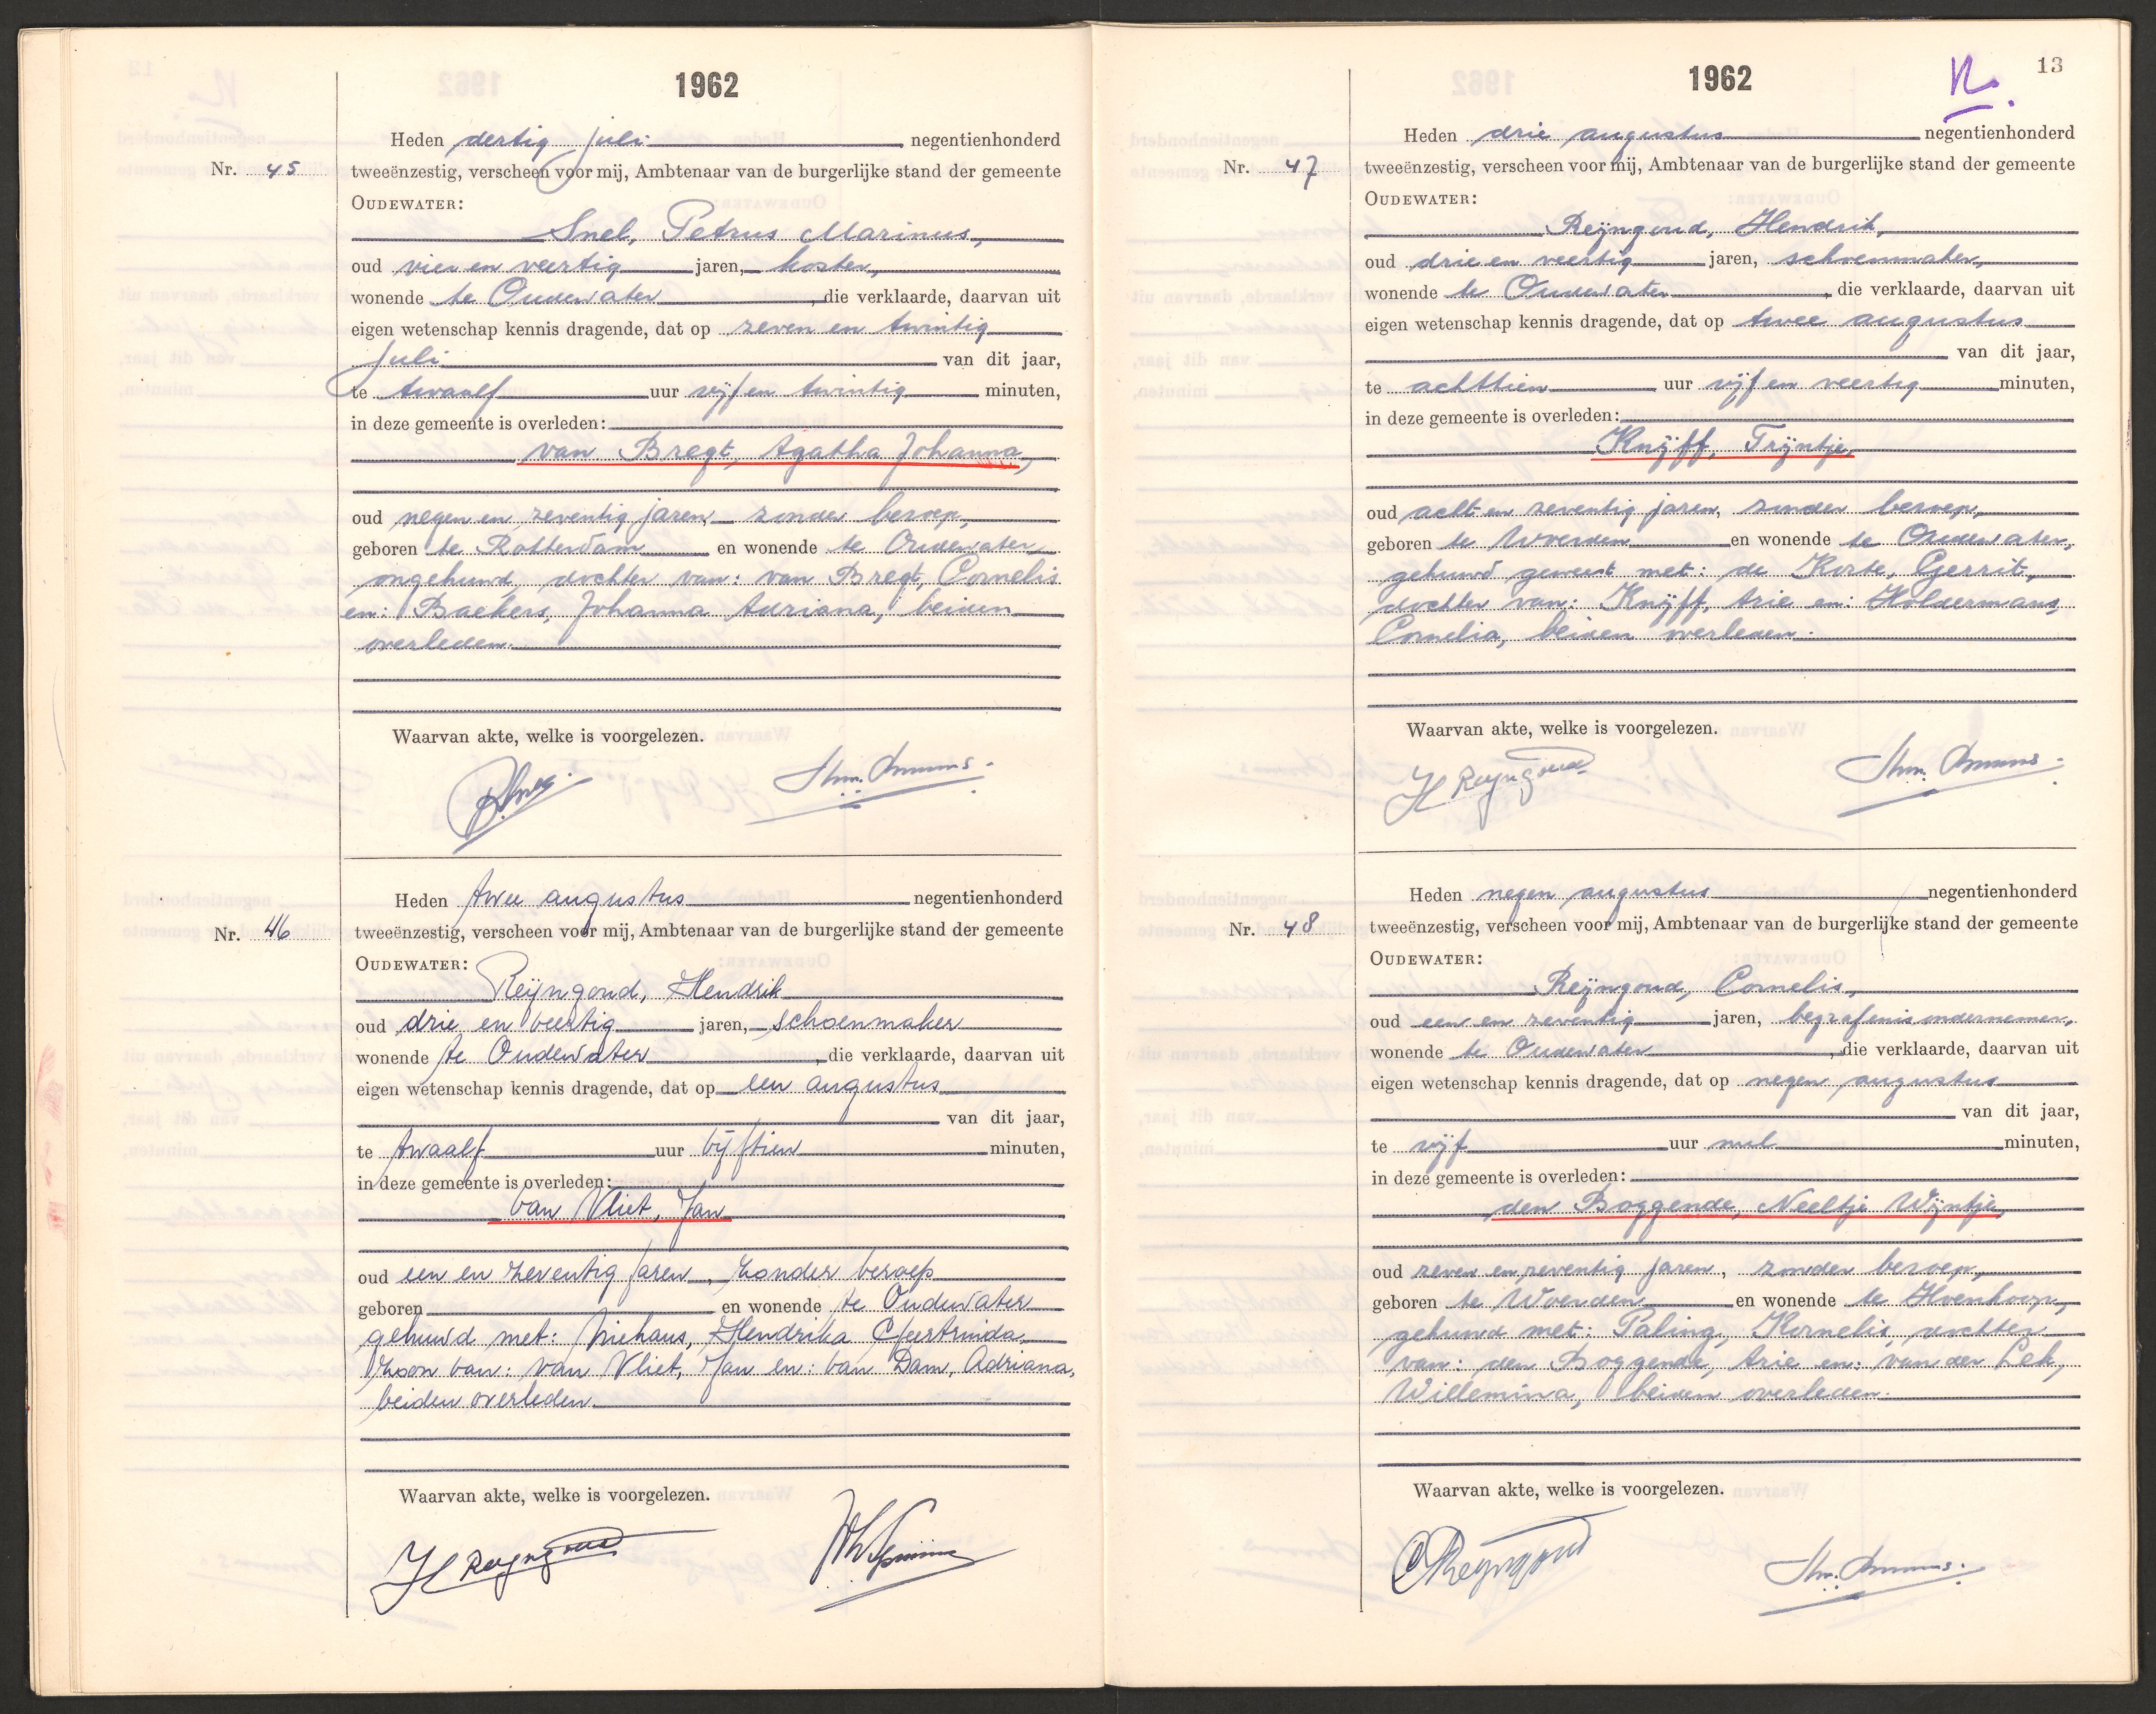 1962
Heden dertig juli negentienhonderd
Nr. 45 tweeënzestig, verscheen voor mij, Ambtenaar van de burgerlijke stand der gemeente
OUDEWATER:
Snel, Petrus Marinus,
oud vier en veertig jaren, koster,
wonende te Oudewater, die verklaarde, daarvan uit
eigen wetenschap kennis dragende, dat op zeven en twintig
juli van dit jaar,
te twaalf uur vijf en twintig minuten,
in deze gemeente is overleden:
van Bregt, Agatha Johanna,
oud negen en zeventig jaren, zonder beroep,
geboren te Rotterdam en wonende te Oudewater,
ongehuwd, dochter van: van Bregt, Cornelis
en: Backers, Johanna Adriana, beiden
overleden.
Waarvan akte, welke is voorgelezen.
Heden twee augustus negentienhonderd
Nr. 46 tweeënzestig, verscheen voor mij, Ambtenaar van de burgerlijke stand der gemeente
OUDEWATER:
Reijngoud, Hendrik
oud drie en veertig jaren, schoenmaker
wonende te Oudewater, die verklaarde, daarvan uit
eigen wetenschap kennis dragende, dat op een augustus
van dit jaar,
te twaalf uur vijftien minuten,
in deze gemeente is overleden:
van Vliet, Jan
oud een en zeventig jaren, zonder beroep
geboren en wonende te Oudewater
gehuwd met: Niehaus, Hendrika Geertruida,
zoon van: van Vliet, Jan en: van Dam, Adriana,
beiden overleden.
Waarvan akte, welke is voorgelezen.
H Reyngoud
13
1962
Heden drie augustus negentienhonderd
Nr. 47 tweeënzestig, verscheen voor mij, Ambtenaar van de burgerlijke stand der gemeente
OUDEWATER:
Reijngoud, Hendrik,
oud drie en veertig jaren, schoenmaker,
wonende te Oudewater, die verklaarde, daarvan uit
eigen wetenschap kennis dragende, dat op twee augustus
van dit jaar,
te achttien uur vijf en veertig minuten,
in deze gemeente is overleden:
Knijff, Trijntje,
oud acht en zeventig jaren, zonder beroep,
geboren te Woerden en wonende te Oudewater,
gehuwd geweest met: de Korte, Gerrit,
dochter van: Knijff, Arie en: Holdermans,
Cornelia, beiden overleden.
Waarvan akte, welke is voorgelezen.
H Reyngoud
Heden negen augustus negentienhonderd
Nr. 48 tweeënzestig, verscheen voor mij, Ambtenaar van de burgerlijke stand der gemeente
OUDEWATER:
Reijngoud, Cornelis,
oud een en zeventig jaren, begrafenisondernemer,
wonende te Oudewater, die verklaarde, daarvan uit
eigen wetenschap kennis dragende, dat op negen augustus
van dit jaar,
te vijf uur nul minuten,
in deze gemeente is overleden:
den Boggende, Neeltje Wijntje,
oud zeven en zeventig jaren, zonder beroep,
geboren te Woerden en wonende te Hoenkoop,
gehuwd met: Paling, Kornelis, dochter
van: den Boggende, Arie en: van der Lek,
Willemina, beiden overleden.
Waarvan akte, welke is voorgelezen.
C Reyngoud